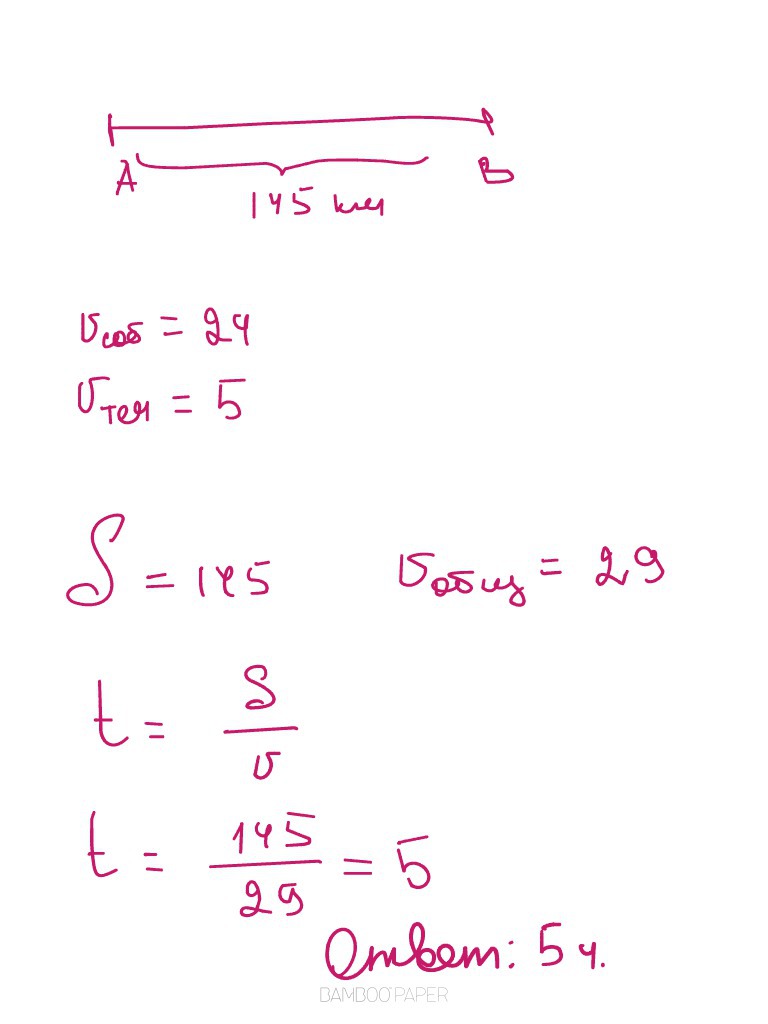 A B
145 км
v соб = 24
v теч = 5
S = 145 v общ = 29
t = S / v
t = 145 / 29 = 5
Ответ: 5 ч.
BAMBOO PAPER